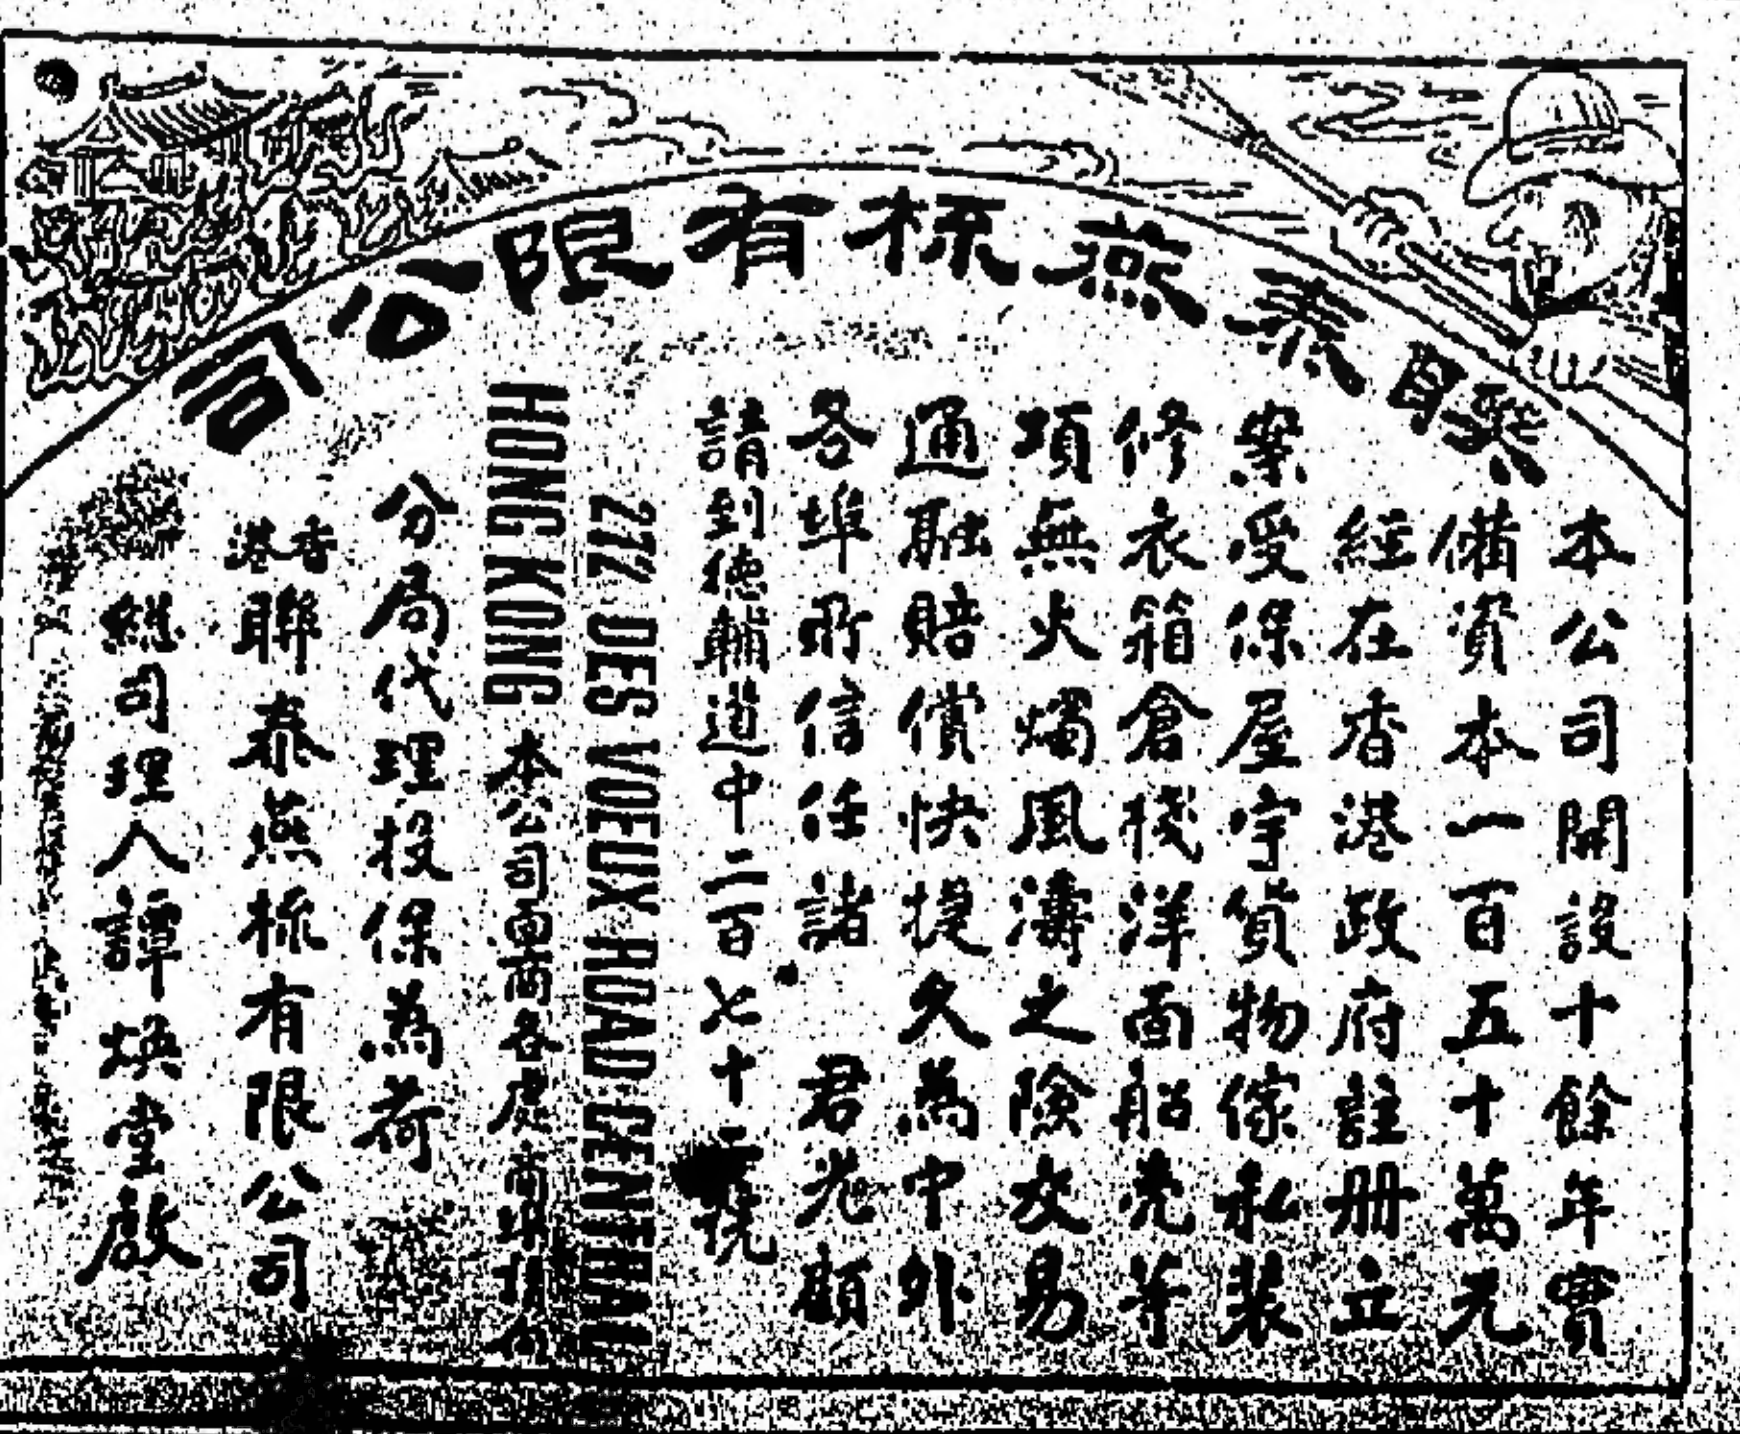 聯泰燕梳有限公司
本公司開設十餘年實
備資本一百五十萬元
經在香港政府註册立
案受保屋宇貨物傢私裝
修衣箱倉棧洋面船壳等
項無火燭風濤之險交易
通融賠償快捷久為中外
各埠所信任諸 君光顧
請到德輔道中二百七十二號
272 DES VOEUX ROAD CENTRAL
HONG KONG 本公司各處
分局代理投保為荷
香港聯泰燕梳有限公司
總司理人譚煥堂啟